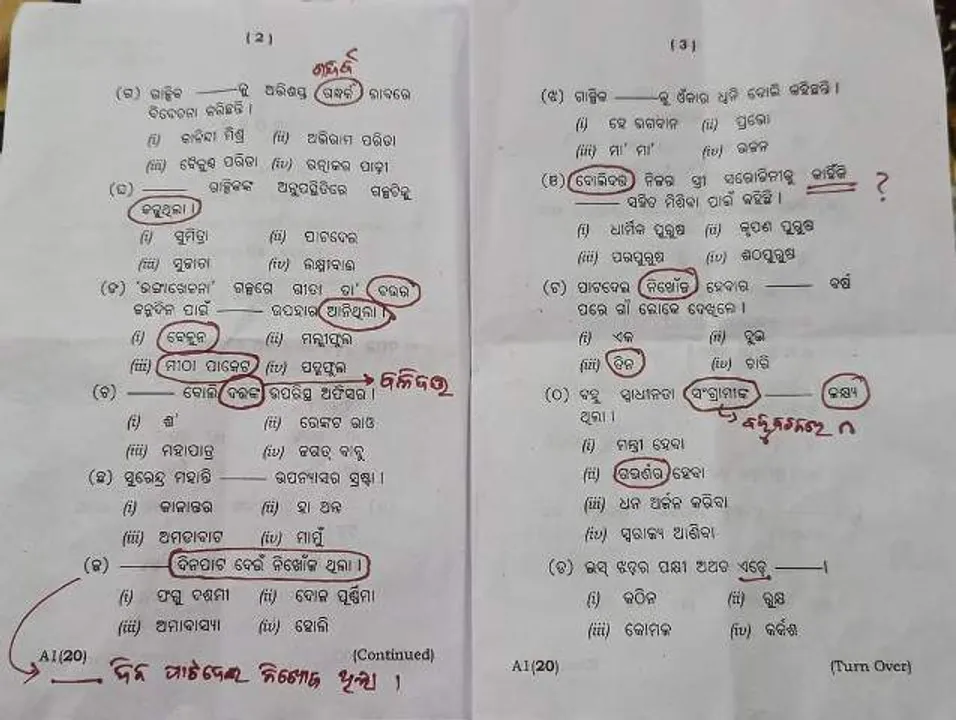 ( 2 )
ଗନ୍ଧର୍ବ
(ଗ) ଗାଳ୍ପିକ ———କୁ ଅଭିଶପ୍ତ ଗନ୍ଧର୍ବ ଭାବରେ
ବିବେଚନା କରିଛନ୍ତି ।
(i) କାଳିନ୍ଦୀ ମିଶ୍ର (ii) ଅଭିରାମ ପରିଡା
(iii) ବୈକୁଣ୍ଠ ପରିଡା (iv) ରତ୍ନାକର ପାଢ଼ୀ
(ଘ) ——— ଗାଳ୍ପିକଙ୍କ ଅନୁପସ୍ଥିତିରେ ଗଳ୍ପଟିକୁ
କଳୁଥିଲା ।
(i) ସୁମିତ୍ରା (ii) ପାଟଦେଇ
(iii) ସୁଜାତା (iv) ଲକ୍ଷ୍ମୀବାଈ
(ଙ) 'ଭଙ୍ଗାଖେଳନା' ଗଳ୍ପରେ ଗୀତା ତା' ଚଉରୀ
ଜନ୍ମଦିନ ପାଇଁ ——— ଉପହାର ଆନିଥିଲା ।
(i) ବେଲୁନ (ii) ମଲ୍ଲୀଫୁଲ
(iii) ମୀଠା ପାକେଟ (iv) ପଦ୍ମଫୁଲ
(ଚ) ——— ବୋଲି ଦଉଙ୍କ ଉପରିସ୍ଥ ଅଫିସର । ବଳିଦତ୍ତ
(i) ଶ' (ii) ଭେଙ୍କଟ ରାଓ
(iii) ମହାପାତ୍ର (iv) ଜଗତ୍ ବାବୁ
(ଛ) ସୁରେନ୍ଦ୍ର ମହାନ୍ତି ——— ଉପନ୍ୟାସର ସ୍ରଷ୍ଟା ।
(i) କାଳାନ୍ତର (ii) ହା ଅନ୍ନ
(iii) ଅମଡାବାଟ (iv) ମାମୁଁ
(ଜ) ——— ଦିନପାଟ ଦେଇଁ ନିଖୋଁଜ ଥିଲା ।
(i) ପଂଗୁ ଦଶମୀ (ii) ଦୋଳ ପୂର୍ଣ୍ଣିମା
(iii) ଅମାବାସ୍ୟା (iv) ହୋଲି
A1(20) (Continued)
——— ଦିନ ପାଟଦେଇ ନିଖୋଜ ଥିଲା ।
( 3 )
(ଝ) ଗାଳ୍ପିକ ———କୁ ଓଁକାର ଧ୍ୱନି ବୋଲି କହିଛନ୍ତି ।
(i) ହେ ଭଗବାନ (ii) ପ୍ରଭୋ
(iii) ମା' ମା' (iv) ଭଜନ
(ଞ) ବୋଲିଦତ୍ତ ନିଜର ସ୍ତ୍ରୀ ସରୋଜିନୀକୁ କାହିଁକି ?
——— ସହିତ ମିଶିବା ପାଇଁ କହିଛି ।
(i) ଧାର୍ମିକ ପୁରୁଷ (ii) କୃପଣ ପୁରୁଷ
(iii) ପରପୁରୁଷ (iv) ଶଠପୁରୁଷ
(ଟ) ପାଟଦେଇ ନିଖୋଁଜ ହେବାର ——— ବର୍ଷ
ପରେ ଗାଁ ଲୋକେ ଦେଖିଲେ ।
(i) ଏକ (ii) ଦୁଇ
(iii) ଦିନ (iv) ଚାରି
(ଠ) ବହୁ ସ୍ୱାଧୀନତା ସଂଗ୍ରାମୀଙ୍କ ——— ଲକ୍ଷ୍ୟ
ଥିଲା ।
(i) ମନ୍ତ୍ରୀ ହେବା
(ii) ଗଭର୍ଣର ହେବା
(iii) ଧନ ଅର୍ଜନ କରିବା
(iv) ସ୍ୱରାଜ୍ୟ ଆଣିବା
(ଡ) ଇସ୍ ଝଡ଼ର ପକ୍ଷୀ ଅଥଚ ଏତ୍ତେ ———।
(i) କଠିନ (ii) ରୁକ୍ଷ
(iii) କୋମଳ (iv) କର୍କଶ
A1(20) (Turn Over)